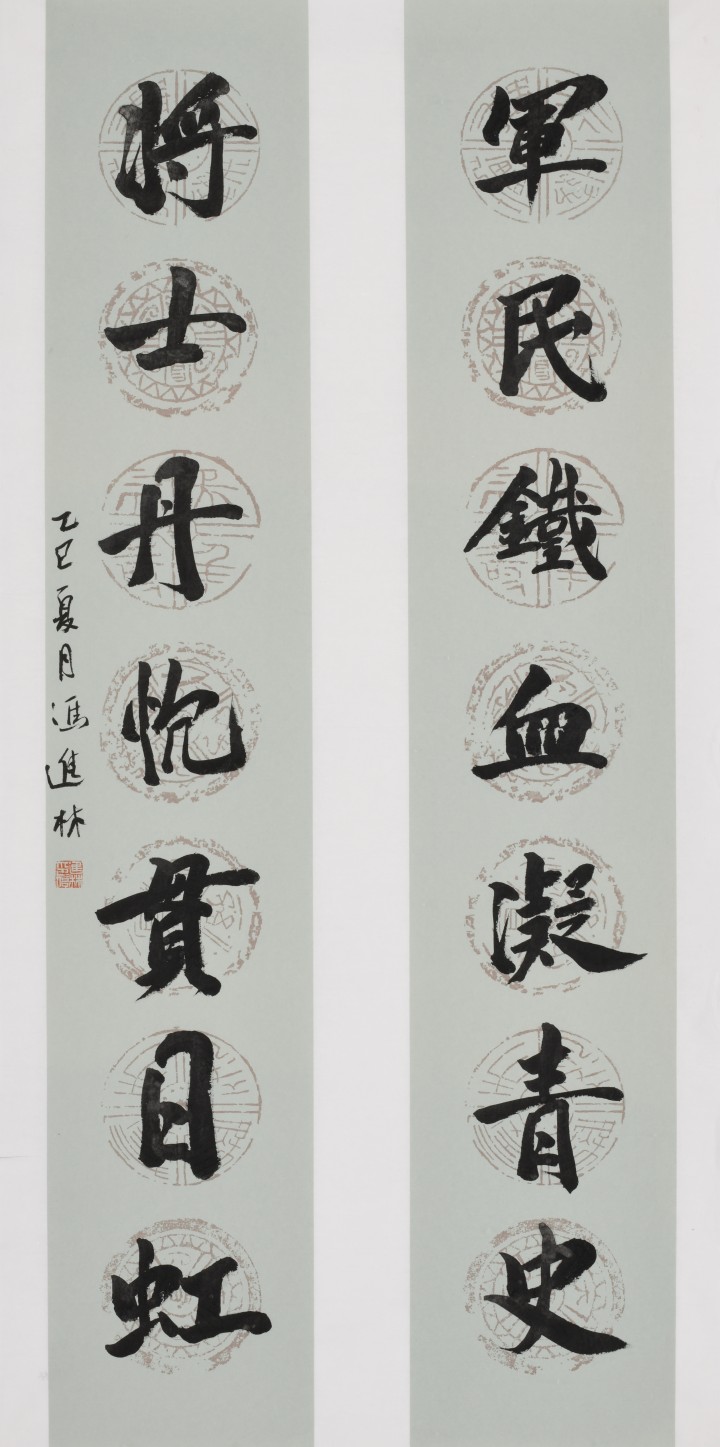 軍民鐵血凝青史
将士丹忱貫日虹
乙巳夏月馮進林